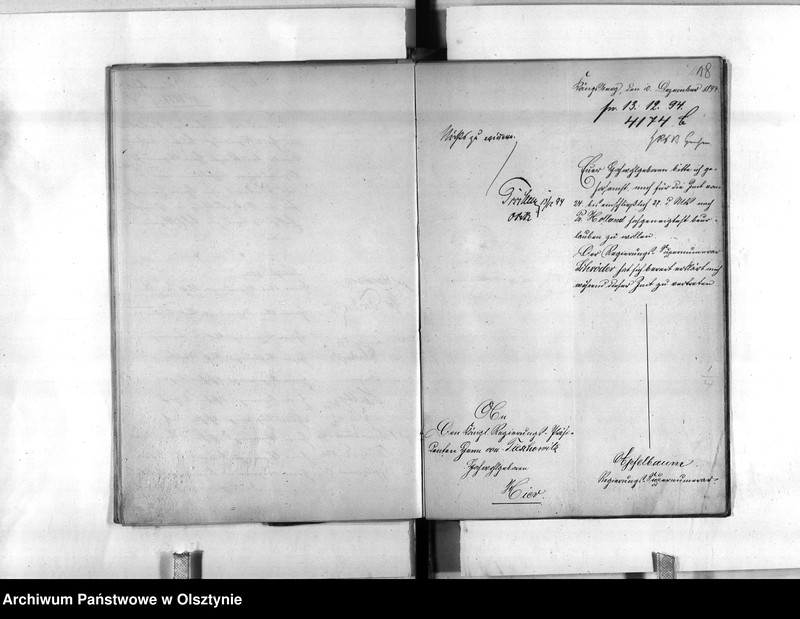 18
Königsberg, den 10. Dezember 1894
pr. 13. 12. 94.
4174 C
Nichts zu erinnern.
12/12 94
Euer Hochwohlgeboren bitte ich ge-
horsamst, mich für die Zeit vom
24. bis einschließlich 27. d. Mts. nach
Pr. Holland hochgeneigtest beur-
lauben zu wollen.
Der Regierungs-Supernumerar
Schröder hat sich bereit erklärt mich
während dieser Zeit zu vertreten.
An
Den Königl. Regierungs-Präsi-
denten Herrn von
Hochwohlgeboren
Hier
Apfelbaum
Regierungs-Supernumerar.
Archiwum Państwowe w Olsztynie